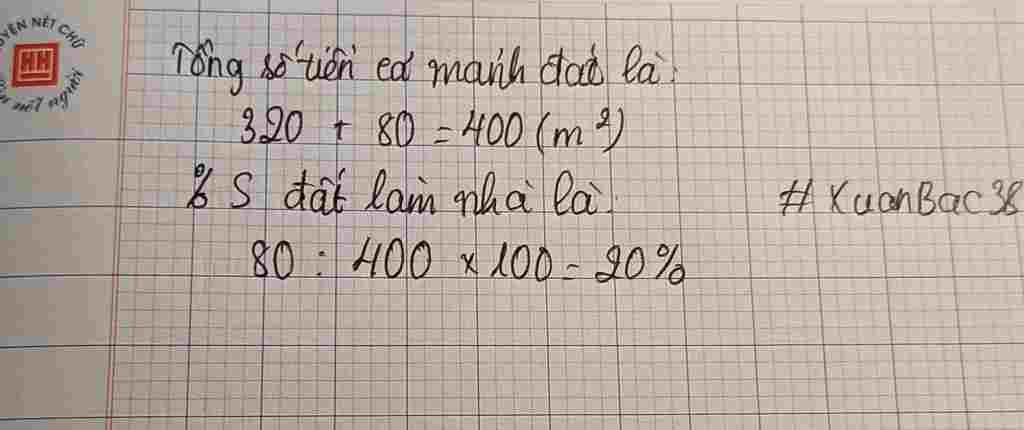 YỆN NÉT CHỮ
HH
nết người
Tổng số tiền cả mảnh đất là:
320 + 80 = 400 (m²)
% S đất làm nhà là:
80 : 400 x 100 = 20%
#XuanBac38